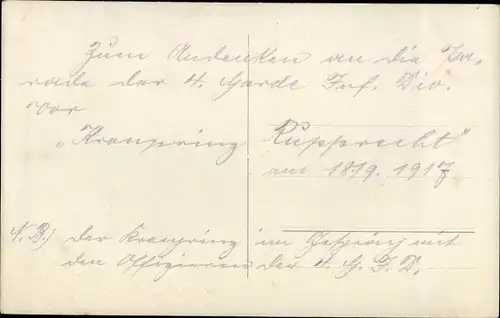 Zum Andenken an die Pa-
rade der 4. Garde Inf. Div.
vor
„Kronprinz Rupprecht"
am 18/9. 1917
N.B.) Der Kronprinz im Gespräch mit
den Offizieren der 4. G. I. D.